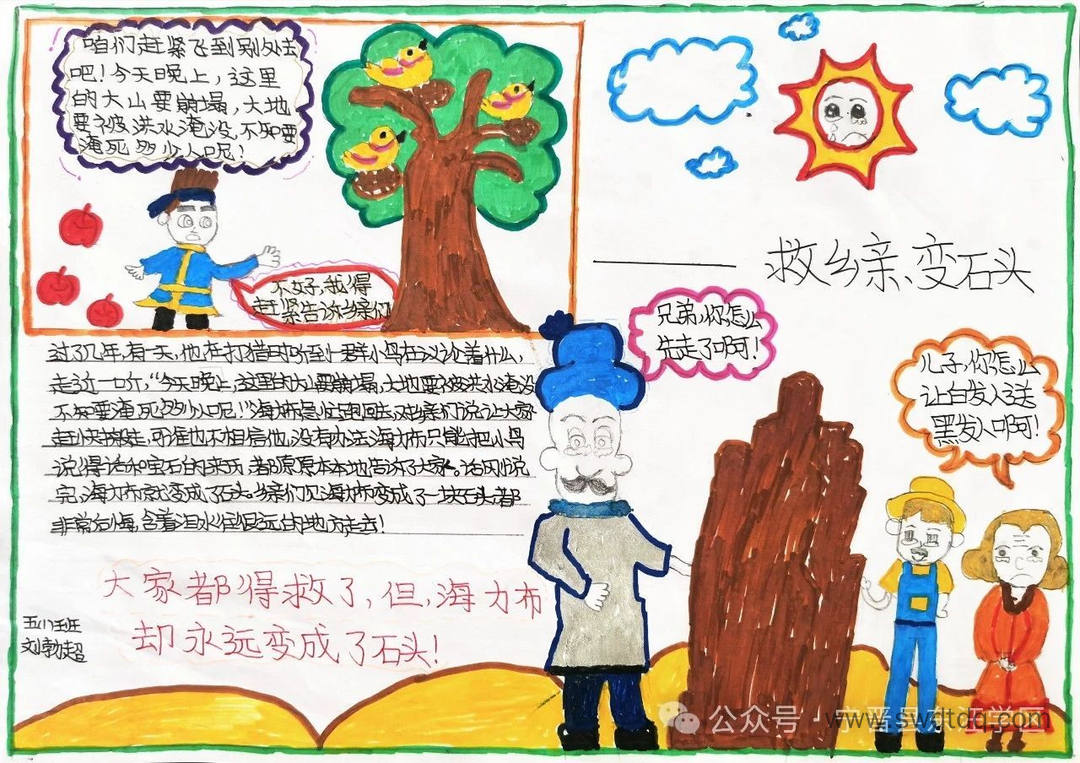 咱们赶紧飞到别处去
吧！今天晚上，这里
的大山要崩塌，大地
要被洪水淹没，不知要
淹死多少人呢！
不好，我得
赶紧告诉乡亲们
——救乡亲、变石头
兄弟，你怎么
先走了啊！
儿子，你怎么
让白发人送
黑发人啊！
过了几年，有一天，他在打猎时听到一群小鸟在议论着什么，
走近一听，“今天晚上，这里的大山要崩塌，大地要被洪水淹没
不知要淹死多少人呢！”海力布急忙跑回去，对乡亲们说让大家
赶快搬走，可谁也不相信他，没有办法海力布只能把小鸟
说得话和宝石的来历，都原原本本地告诉了大家。话刚说
完，海力布就变成了石头。乡亲们见海力布变成了一块石头都
非常后悔，含着泪水往很远的地方走去！
大家都得救了，但，海力布
却永远变成了石头！
五（1）班
刘勃超
公众号·宁晋县东汪学区
www.swdtdq.com